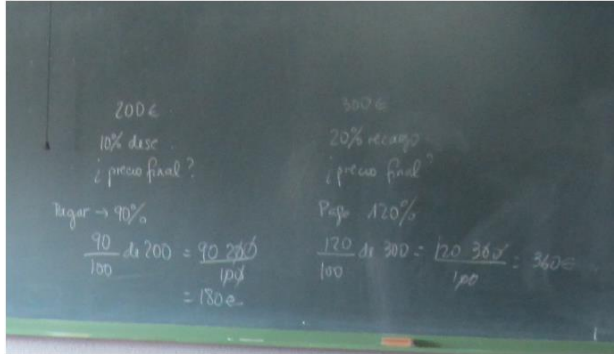 200€
10% desc.
¿precio final?
Pagar → 90%
90/100 de 200 = 90 200/100
= 180€
300€
20% recargo
¿precio final?
Pago 120%
120/100 de 300 = 120 300/100 = 360€